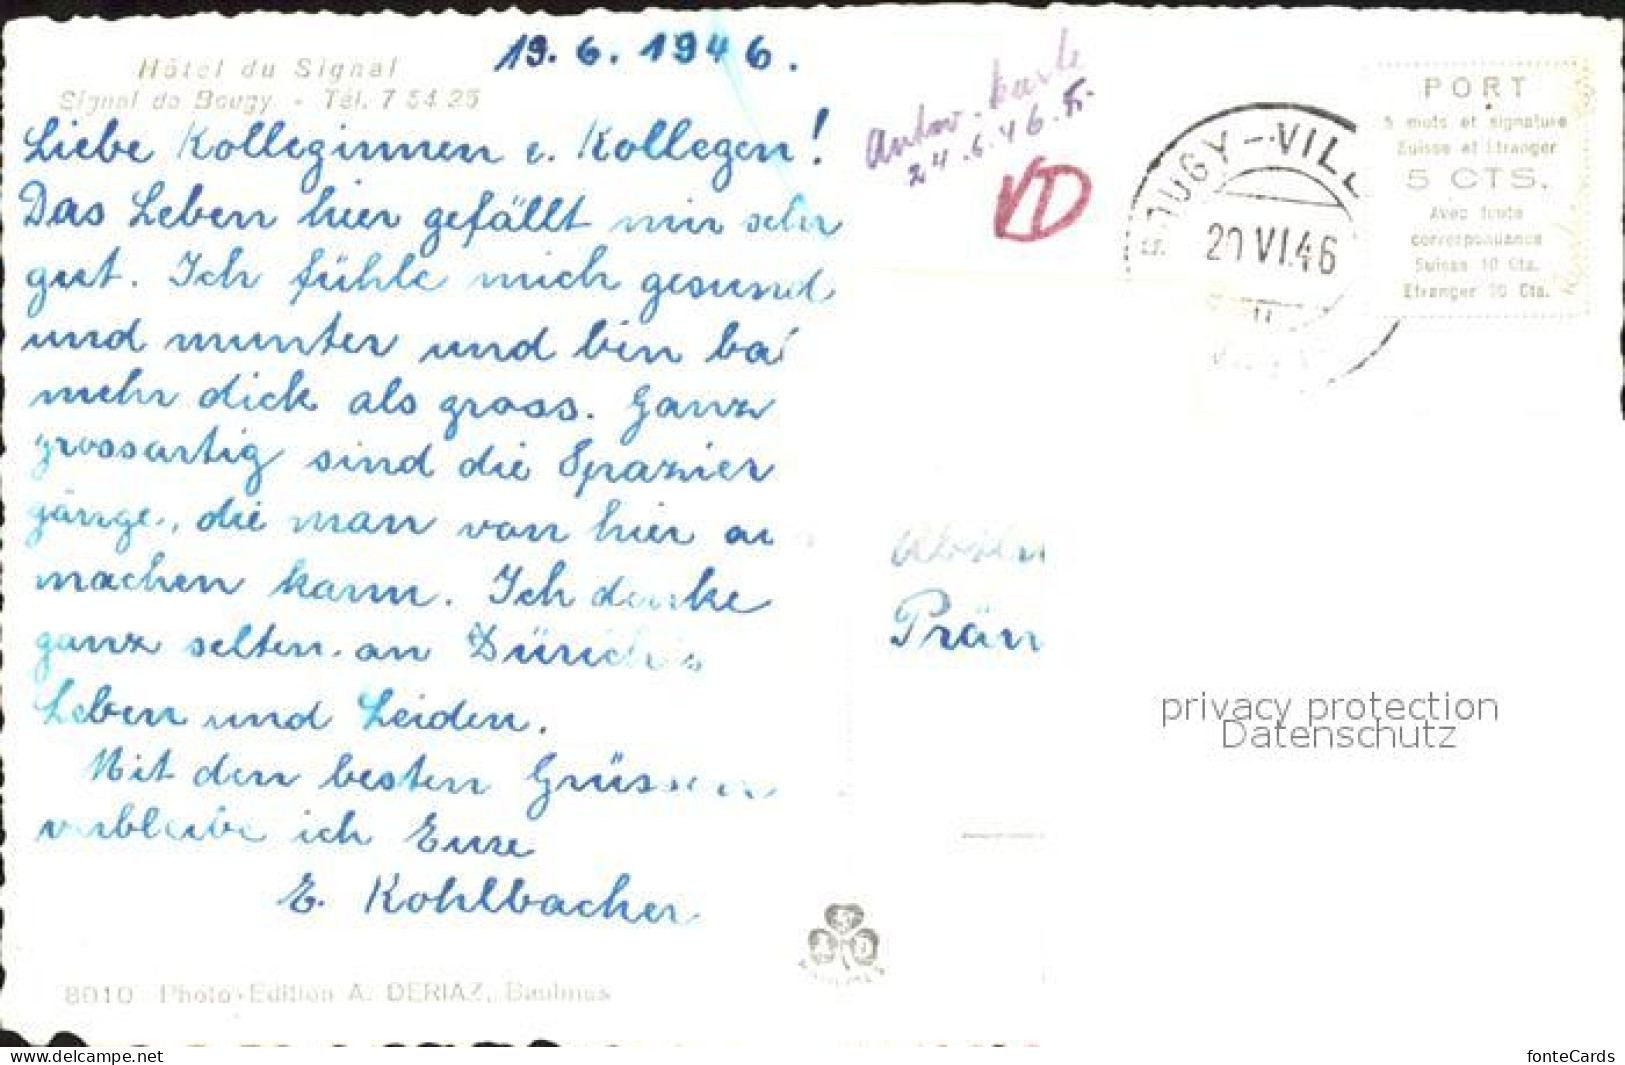 Hôtel du Signal
Signal de Bougy - Tél. 7 54 25
19. 6. 1946.
Liebe Kolleginnen u. Kollegen!
Das Leben hier gefällt mir sehr
gut. Ich fühle mich gesund
und munter und bin ba
mehr dick als gross. Ganz
grossartig sind die Spazier
gänge, die man von hier au
machen kann. Ich denke
ganz selten an Zürich's
Leben und Leiden.
Mit den besten Grüssen
verbleibe ich Eure
E. Kohlbacher.
8010 Photo-Edition A. DERIAZ, Baulmes
Antw. karte
24.6.46.
VD
BOUGY-VILL
20 VI.46
PORT
5 mots et signature
Suisse et Etranger
5 CTS.
Avec toute
correspondance
Suisse 10 Cts.
Etranger 20 Cts.
Prän
privacy protection
Datenschutz
www.delcampe.net
fonteCards